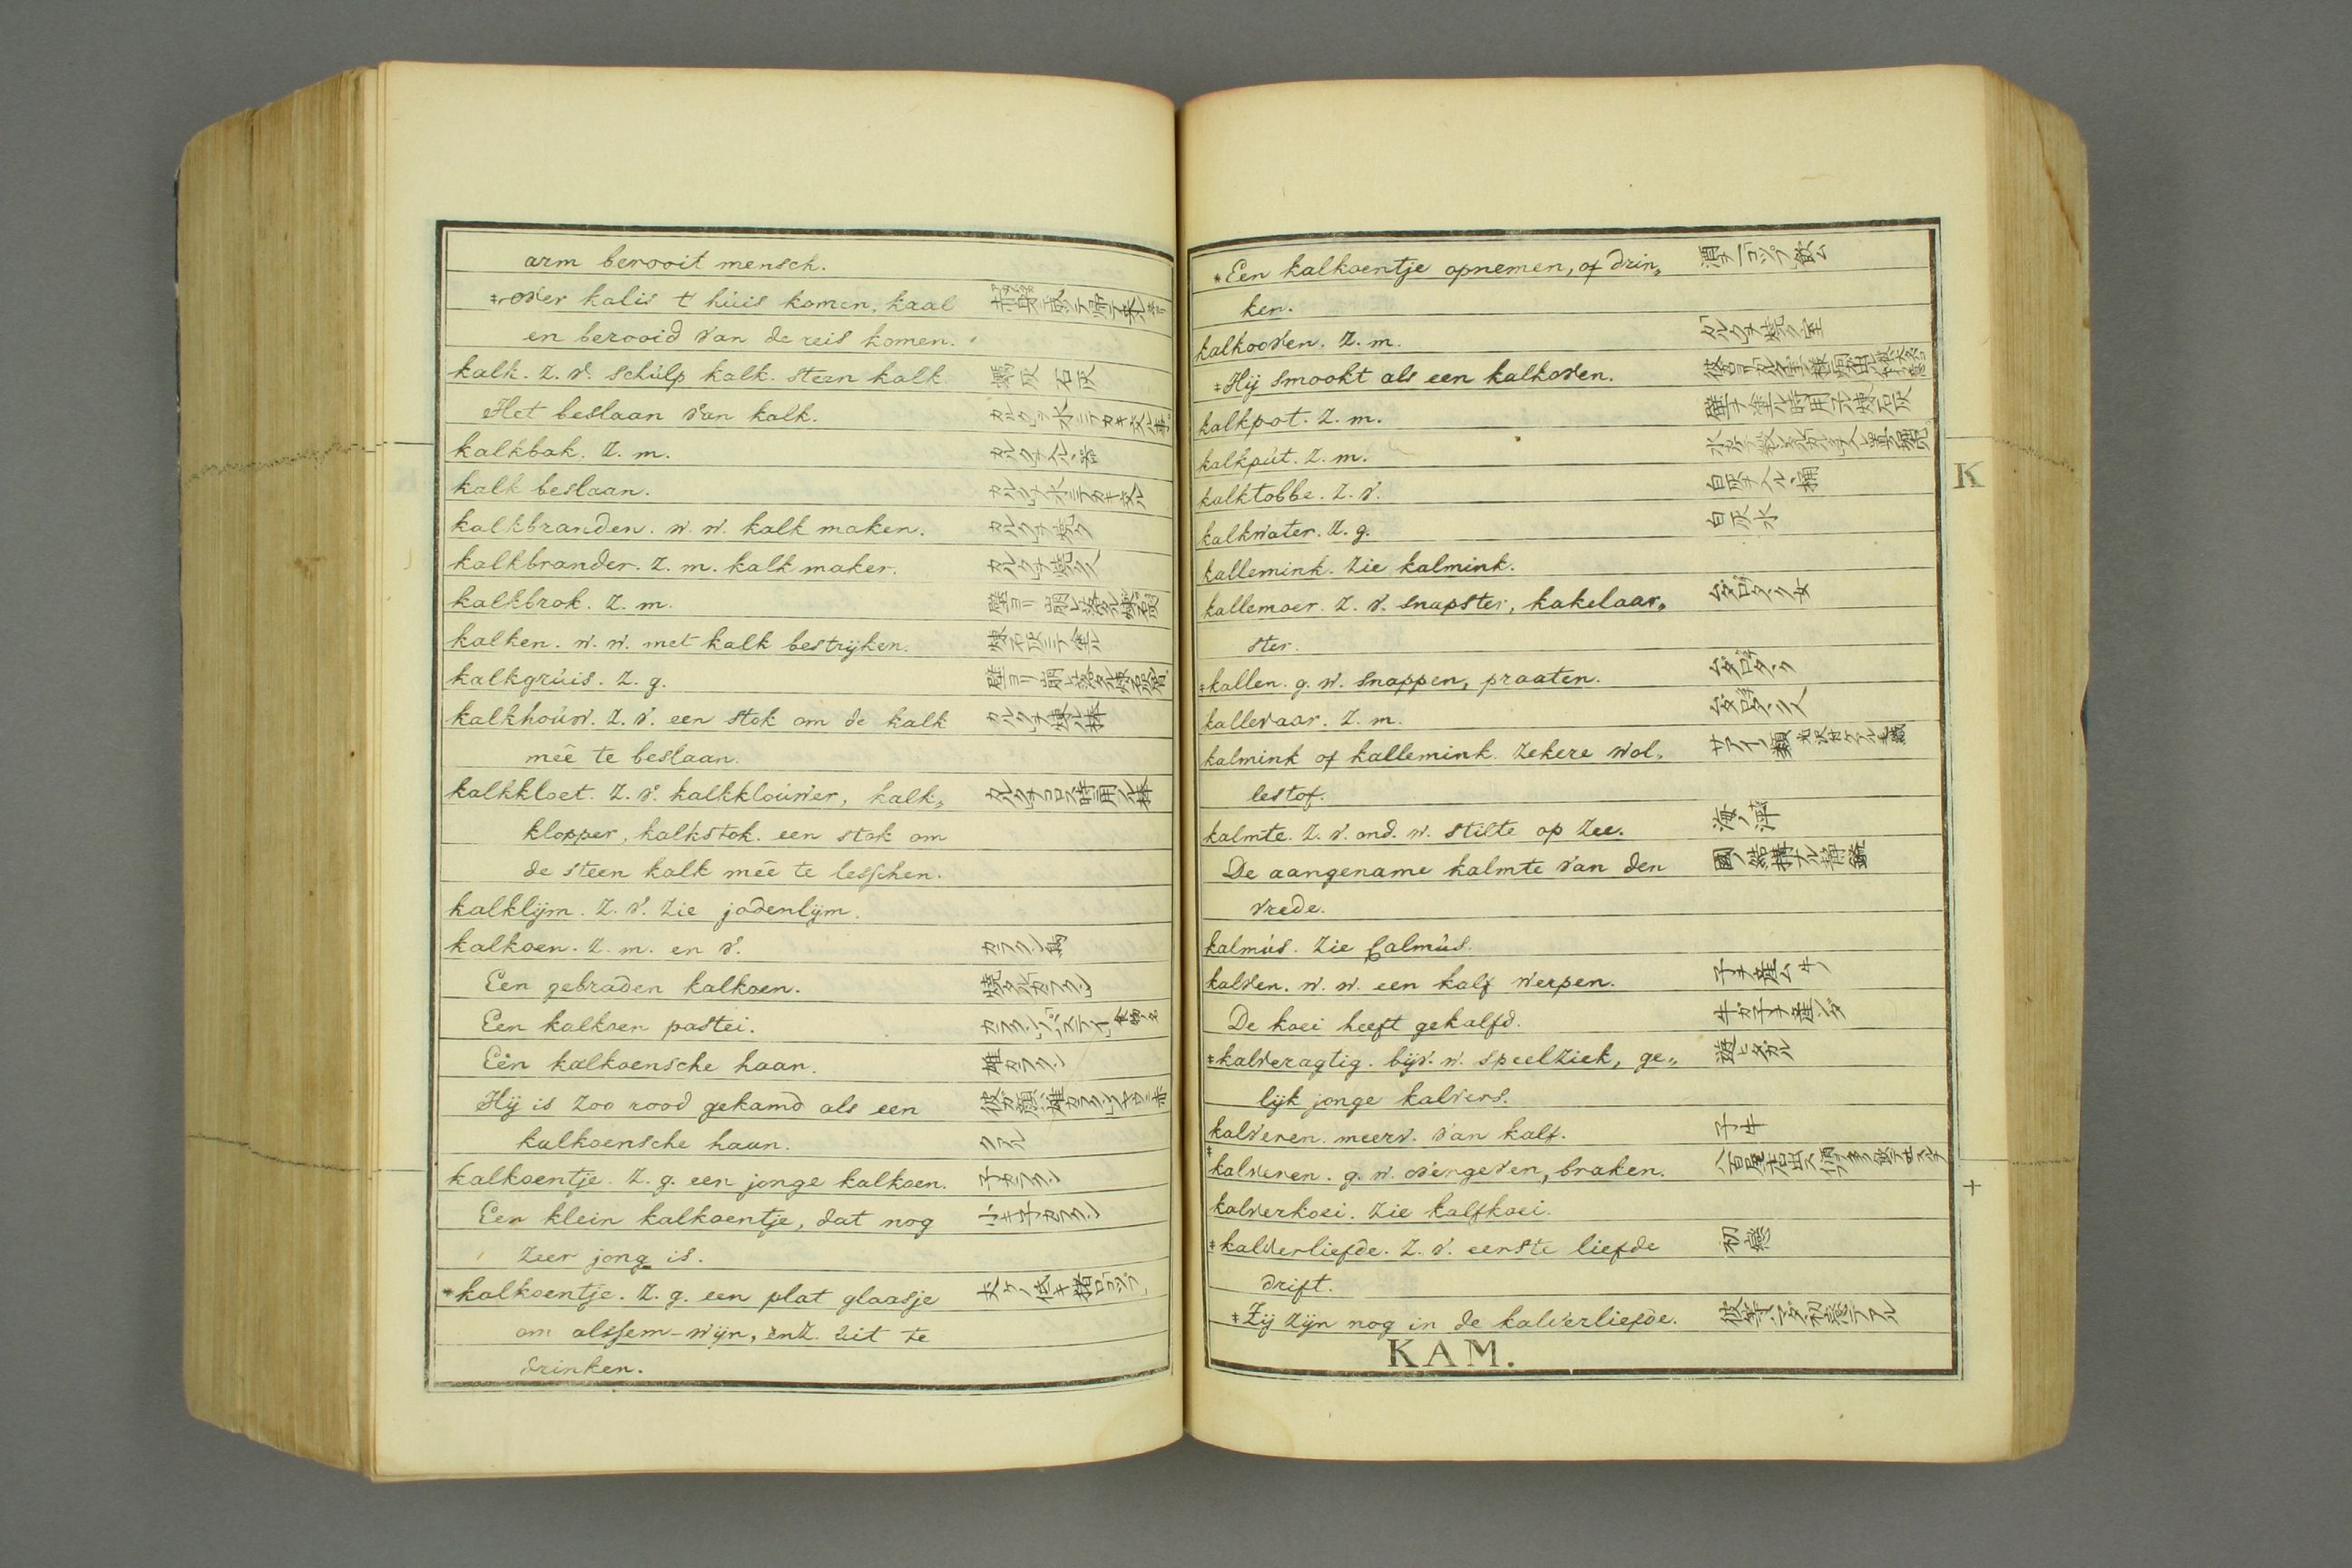 arm berooit mensch.
*over kalis t' húis komen, kaal
en berooid van de reis komen.
kalk. z. v. schúlp kalk. steen kalk 石灰
Het beslaan van kalk.
kalkbak. z. m. カルクヲ入ル器
kalk beslaan.
kalkbranden. w. w. kalk maken. カルクヲ焼ク
kalkbrander. z. m. kalk maker. カルクヲ焼ク人
kalkbrok. z. m.
kalken. w. w. met kalk bestrijken. 煉石灰ニテ塗ル
kalkgrúis. z. g.
kalkhoúw. z. v. een stok om de kalk カルクヲ煉ル棒
meê te beslaan.
kalkkloet. z. v. kalkkloúwer, kalk„
klopper, kalkstok. een stok om
de steen kalk meê te lesschen.
kalklijm. z. v. zie jodenlijm.
kalkoen. z. m. en v. カラクン鳥
Een gebraden kalkoen. 焼タルカラクン
Een kalkoen pastei.
Een kalkoensche haan. 雄カラクン
Hij is zoo rood gekamd als een
kalkoensche haan.
kalkoentje. z. g. een jonge kalkoen. 子カラクン
Een klein kalkoentje, dat nog 小キ子カラクン
zeer jong is.
*kalkoentje. z. g. een plat glaasje
om alssem-wijn, enz. úit te
drinken.
*Een kalkoentje opnemen, of drin„ 酒ヲ一コップ飲ム
ken.
kalkooven. z. m. カルクヲ焼ク室
*Hij smookt als een kalkoven.
kalkpot. z. m.
kalkpút. z. m.
kalktobbe. z. v. 白灰ヲ入ル桶
kalkwater. z. g. 白灰水
kallemink. zie kalmink.
kallemoer. z. v. snapster, kakelaar„
ster.
*kallen. g. w. snappen, praaten.
kallevaar. z. m.
kalmink of kallemink. zekere wol„
lestof.
kalmte. z. v. ond. w. stilte op zee.
De aangename kalmte van den 國ノ結構ナル静謐
vrede.
kalmús. zie Calmús.
kalven. w. w. een kalf werpen. 子ヲ産ム牛ノ
De koei heeft gekalfd. 牛ガ子ヲ産ンダ
*kalveragtig. bijv. w. speelziek, ge„
lijk jonge kalvers.
kalveren. meerv. van kalf. 子牛
*kalveren. g. w. overgeven, braken.
kalverkoei. zie kalfkoei.
*kalverliefde. z. v. eerste liefde 初戀
drift.
*Zij zijn nog in de kalverliefde.
KAM.
K